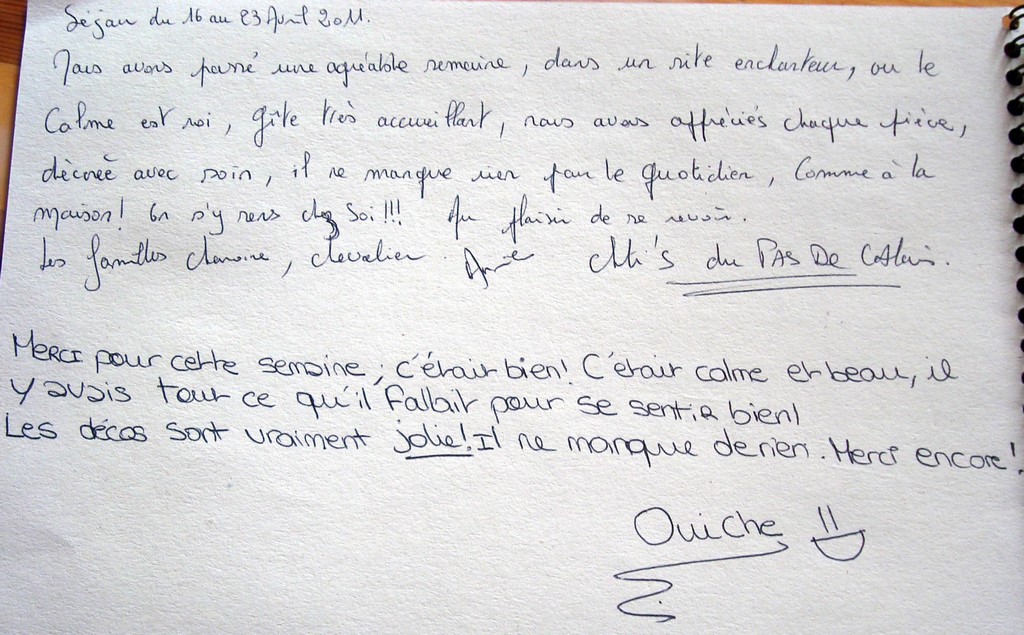 Séjour du 16 au 23 Avril 2011.
Nous avons passé une agréable semaine, dans un site enchanteur, ou le
Calme est roi, gîte très accueillant, nous avons appréciés chaque pièce,
décorée avec soin, il ne manque rien pour le quotidien, Comme à la
maison! On s'y sens chez Soi!!! Au plaisir de se revoir.
Les familles Chevalier. Ch'tis du PAS DE CAlais.
Merci pour cette semaine, c'étair bien! C'étair calme et beau, il
y avais tout ce qu'il fallait pour se sentir bien!
Les décos sont vraiment jolie! Il ne manque de rien. Merci encore!
Ouiche =)